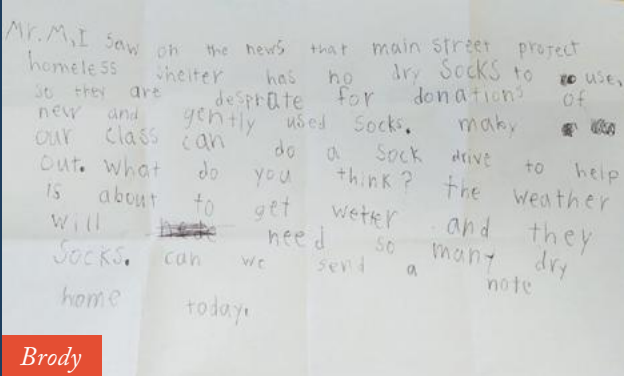 Mr. M, I saw on the news that main street project
homeless shelter has no dry socks to use,
so they are desprate for donations of
new and gently used socks. maby
our class can do a sock drive to help
out. what do you think? the weather
is about to get wetter and they
will need so many dry
socks. can we send a note
home today.
Brody